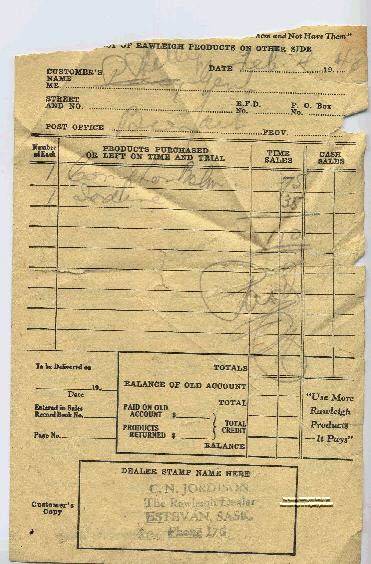 and Not Have Them"
OF RAWLEIGH PRODUCTS ON OTHER SIDE
CUSTOMER'S NAME
DATE Feb 4 19 48
ME
STREET AND NO. R.F.D. No. P. O. Box No.
POST OFFICE PROV.
Number of Each PRODUCTS PURCHASED OR LEFT ON TIME AND TRIAL TIME SALES CASH SALES
1 Camphor Balm 75
1 35
1 10
To be Delivered on
19
Date
Entered in Sales Record Book No.
Page No.
TOTALS
BALANCE OF OLD ACCOUNT
TOTAL
PAID ON OLD ACCOUNT $
PRODUCTS RETURNED $
TOTAL CREDIT
BALANCE
"Use More
Rawleigh
Products
It Pays"
DEALER STAMP NAME HERE
C. N. JORDISON
The Rawleigh Dealer
ESTEVAN, SASK.
Phone 176
Customer's Copy